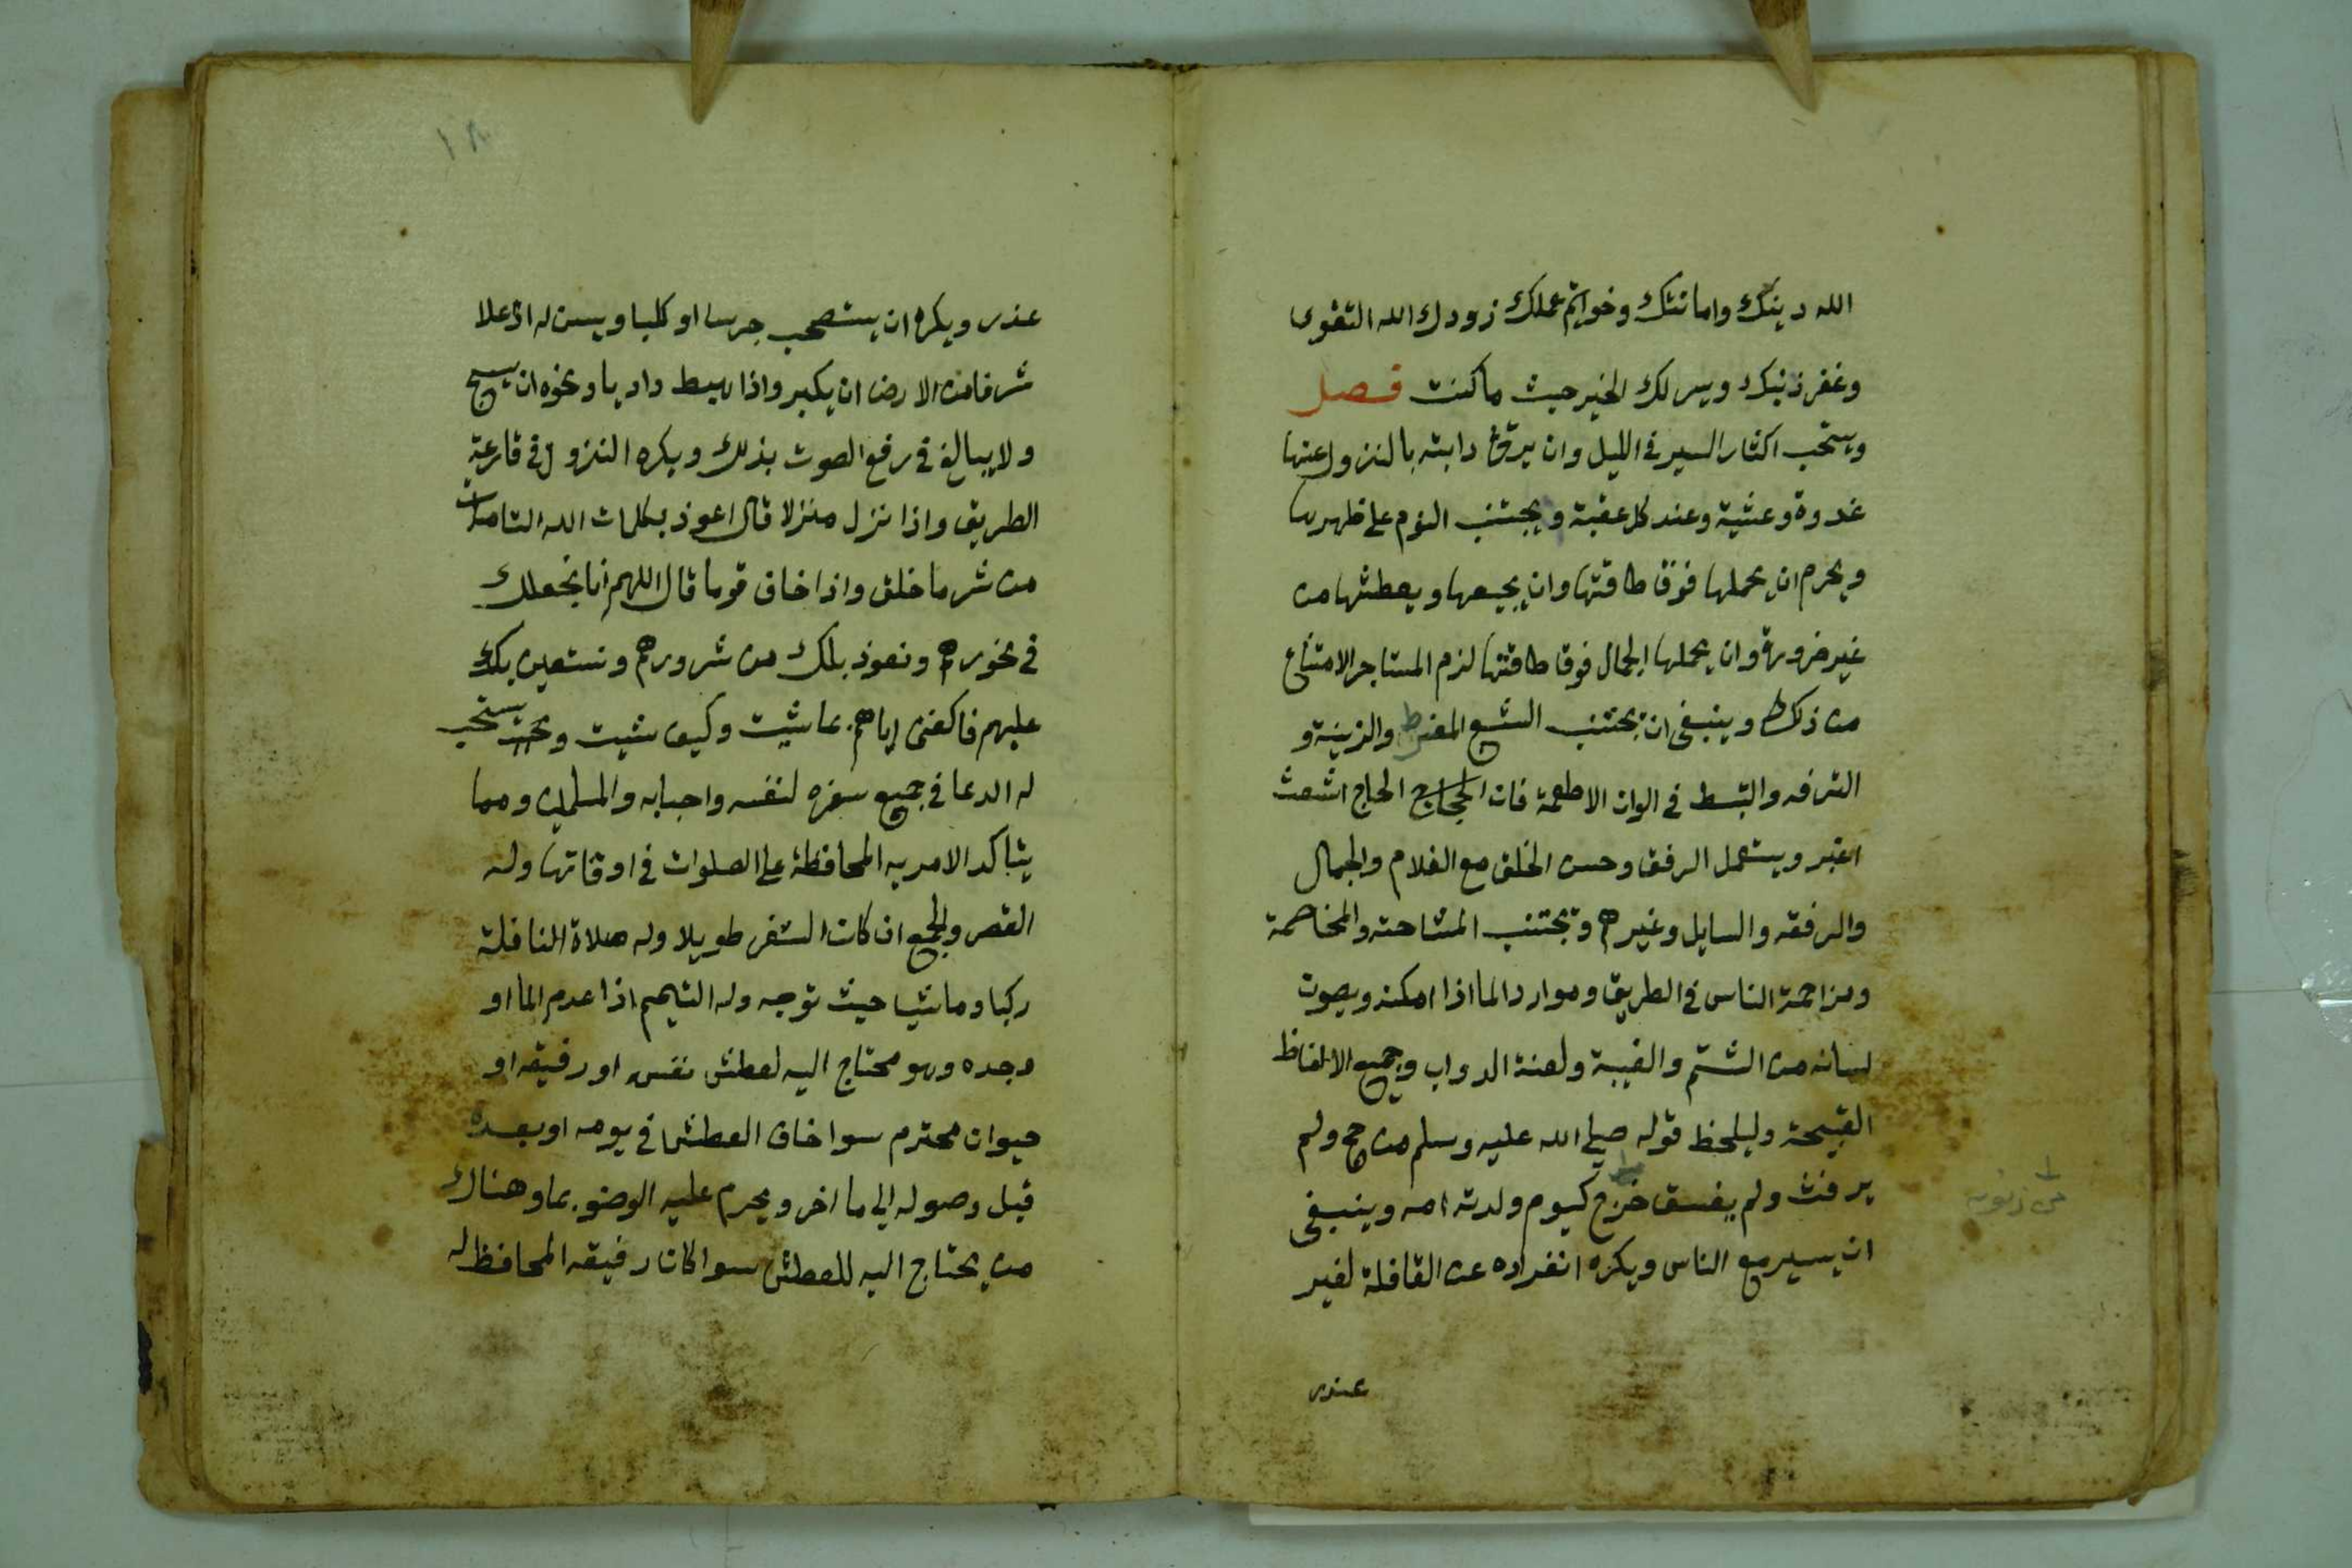 الله دينك وامانتك وخواتم عملك زودك الله التقوى
وغفر ذنبك ويسر لك الخير حيث ما كنت فصل
ويستحب اكثار السير في الليل وان يرق دابته بالنزول عنها
غدوة وعشية وعند كل عقبة ويجتنب النوم على ظهرها
ويحرم ان يحملها فوق طاقتها وان يجيعها ويعطشها من
غير ضرورة وان يحملها الجمال فوق طاقتها لزم المستاجر الامتناع
من ذلك وينبغي ان يجتنب الشبع المفرط والزينة و
الترفه والتبسط في الوان الاطعمة فان الحجاج الحاج اشعث
اغبر ويستعمل الرفق وحسن الخلق مع الغلام والجمال
والرفقه والسايل وغيرهم ويجتنب المشاحنه والمخاصمة
ومزاحمة الناس في الطريق وموارد الما اذا امكنه ويصون
لسانه من الشتم والغيبة ولعنة الدواب وجميع الالفاظ
القبيحة وليلحظ قوله صلى الله عليه وسلم من حج ولم
يرفث ولم يفسق خرج كيوم ولدته امه وينبغي
ان يسير مع الناس ويكره انفراده عن القافلة لغير
عذر
١٨
عذر ويكره ان يستصحب جرسا او كلبا ويسن له اذ علا
شرفا من الارض ان يكبر واذا هبط واديا ونحوه ان يسبح
ولا يبالغ في رفع الصوت بذلك ويكره النزول في قارعة
الطريق واذا نزل منزلا قال اعوذ بكلمات الله التامات
من شر ما خلق واذا خاف قوما قال اللهم انا نجعلك
في نحورهم ونعوذ بك من شرورهم ونستعين بك
عليهم فاكفني اياهم بما شيت وكيف شيت ويستحب
له الدعا في جميع سفره لنفسه واحبابه والمسلمين ومما
يتاكد الامر به المحافظة على الصلوات في اوقاتها وله
القصر والجمع ان كان السفر طويلا وله صلاة النافلة
ركبا وماشيا حيث توجه وله التيمم اذا عدم الما او
وجده وهو محتاج اليه لعطش نفسه او رفيقه او
حيوان محترم سوا خاف العطش في يومه او بعده
قبل وصوله الى ما اخر ويحرم عليه الوضو بما وهناك
من يحتاج اليه للعطش سوا كان رفيقه المحافظ له